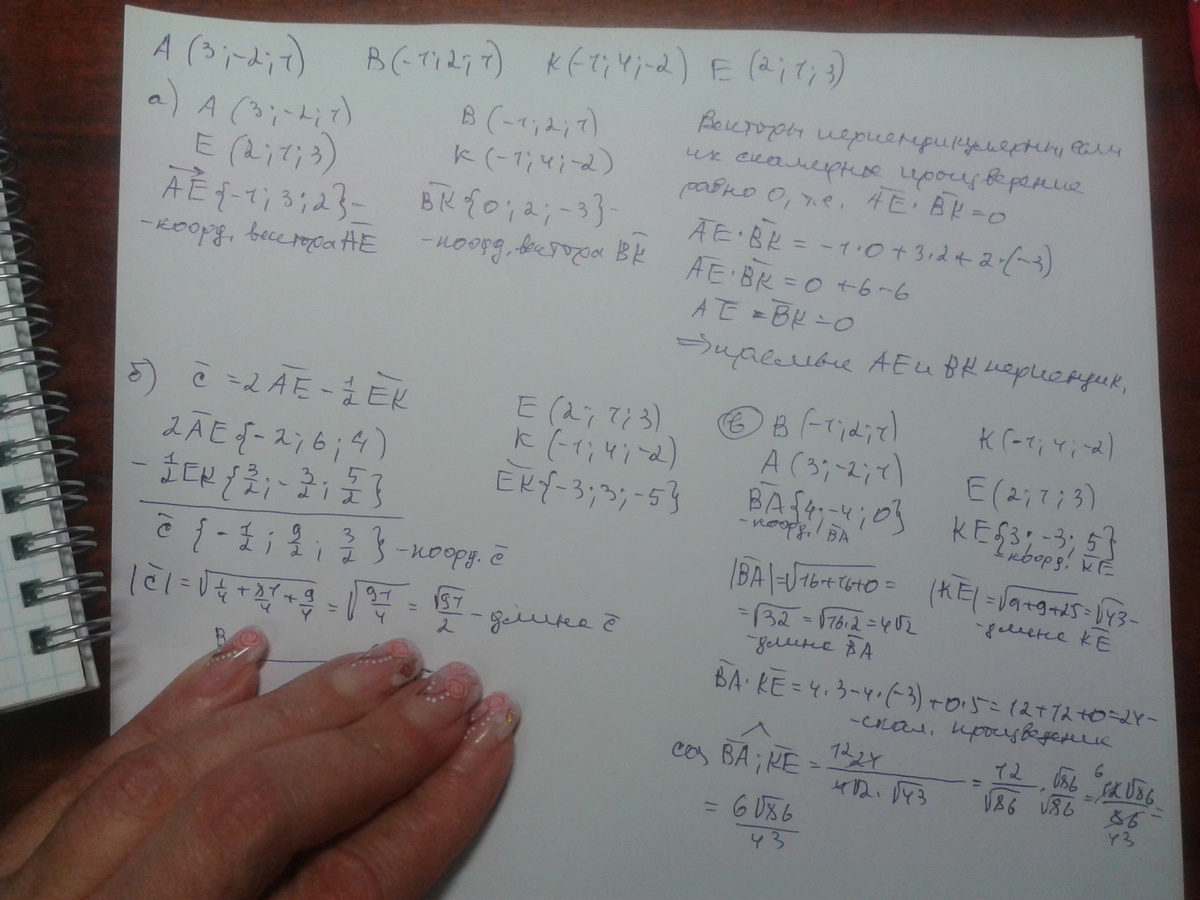 A (3;-2;1) B(-1;2;1) K(-1;4;-2) E (2;1;3)
а) A (3;-2;1)
E (2;1;3)
AE{-1;3;2}-
-коорд. вектора AE
B(-1;2;1)
K(-1;4;-2)
BK{0;2;-3}-
-коорд. вектора BK
Векторы перпендикулярны, если
их скалярное произведение
равно 0, т.е. AE·BK=0
AE·BK = -1·0+3·2+2·(-3)
AE·BK = 0+6-6
AE·BK=0
⇒ прямые AE и BK перпендик.
б) c = 2AE - 1/2 EK
2AE{-2;6;4}
- 1/2EK{3/2;-3/2;5/2}
c {-1/2; 9/2; 3/2} - коорд. c
|c| = √(1/4+81/4+9/4) = √(91/4) = √91/2 - длина c
B
E (2;1;3)
K (-1;4;-2)
EK{-3;3;-5}
в B (-1;2;1)
A (3;-2;1)
BA{4;-4;0}
-коорд. BA
|BA|=√(16+16+0) =
=√32 = √(16·2) = 4√2
-длина BA
K(-1;4;-2)
E(2;1;3)
KE{3;-3;5}
-коорд. KE
|KE|=√(9+9+25)=√43-
-длина KE
BA·KE = 4·3-4·(-3)+0·5=12+12+0=24-
-скал. произведение
cos BA;KE = 24/(4√2·√43) = 12/√86 · √86/√86 = 12√86/86 =
= 6√86/43